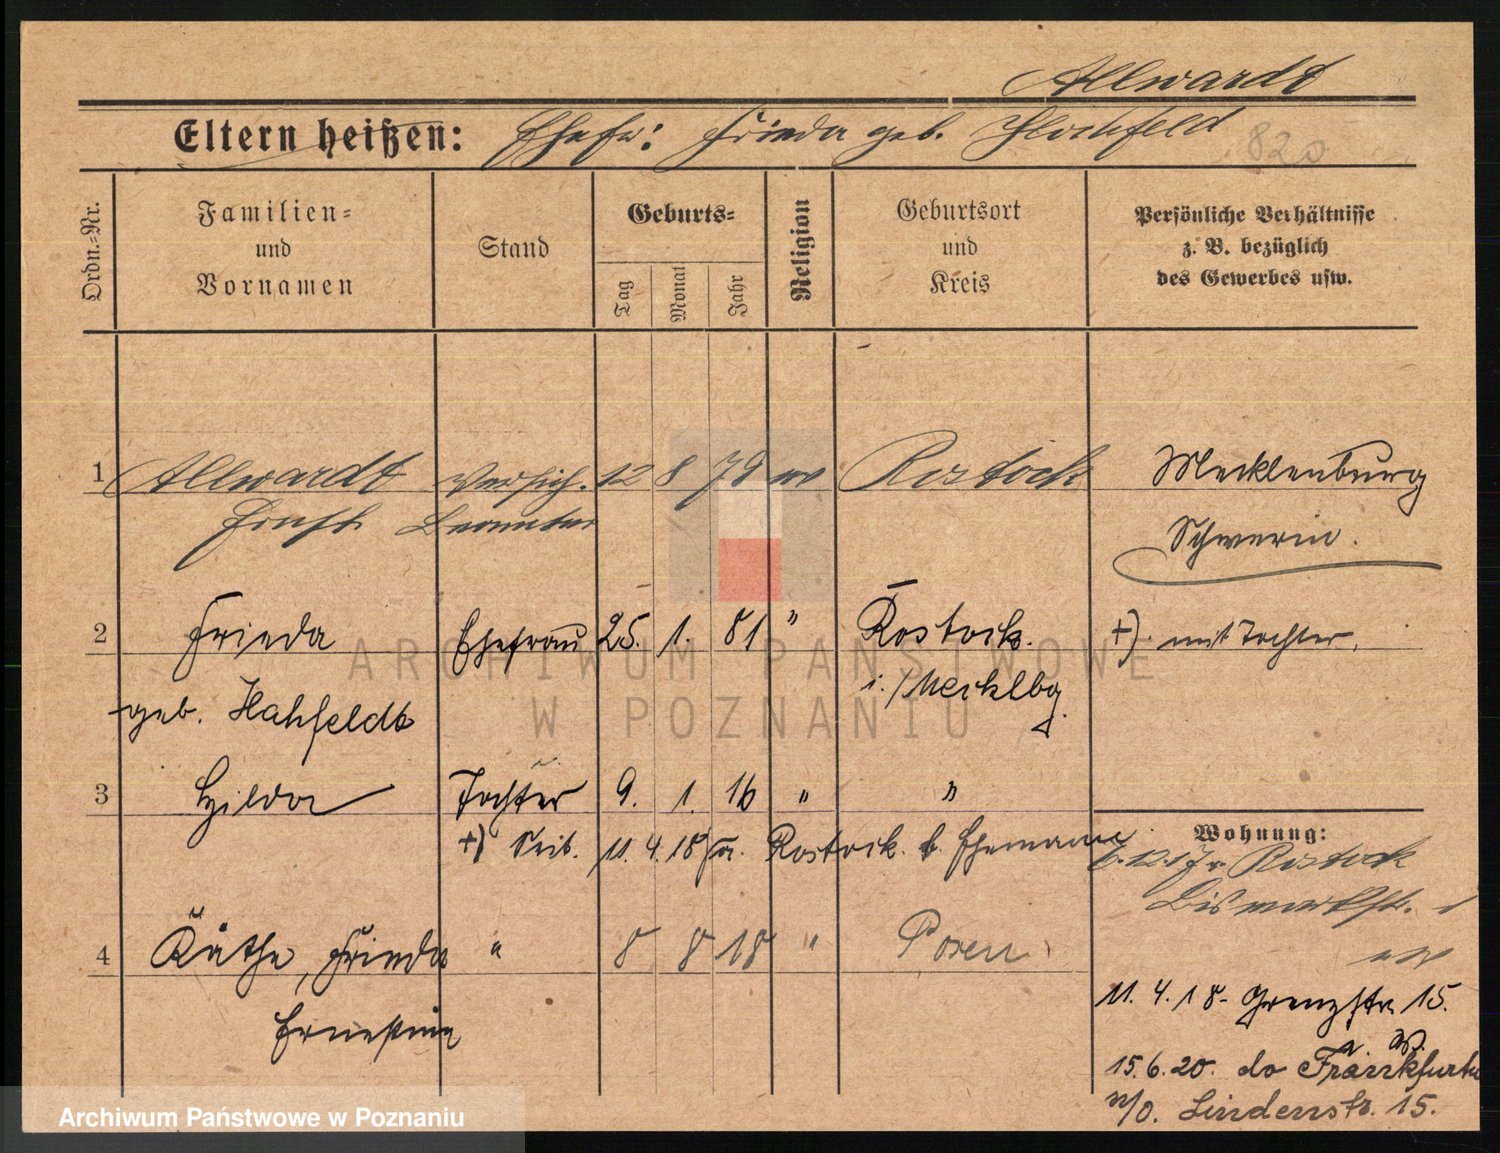 Allwardt
Eltern heißen: Ehefr: Frieda geb. Hochfeld 820
Ordn.-Nr.
Familien-
und
Vornamen
Stand
Geburts-
Tag
Monat
Jahr
Religion
Geburtsort
und
Kreis
Persönliche Verhältnisse
z. B. bezüglich
des Gewerbes usw.
1 Allwardt Versich. 12 8 79 ev Rostock Mecklenburg
Ernst Beamter Schwerin.
2 Frieda Ehefrau 25. 1. 81 " Rostock. +) mit Tochter.
geb. Hahfeldt i./Mecklbg.
3 Hilda Tochter 9. 1. 16 " "
+) seit 11. 4. 18 Rostock. z. Ehemann
4 Käthe, Frieda " 8 8 18 " Posen
Ernestine
Wohnung:
Rostock
Bismarkstr. 1
11. 4. 18 - Grenzstr 15.
15. 6. 20. do Frankfurt
a/O. Lindenstr. 15.
ARCHIWUM PAŃSTWOWE
W POZNANIU
Archiwum Państwowe w Poznaniu